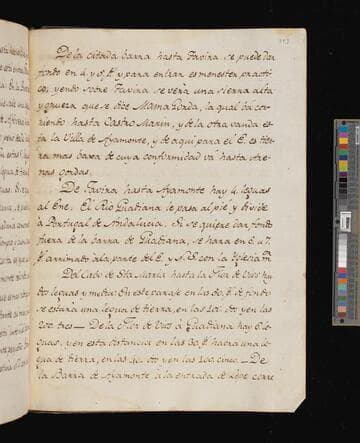 De la citenda barra hasta Tavira se puede dar
fondo en 4. y 5. bs. y para entrar es menester practi
co, y endo sobre Tavira se verá una sierra alta
y gruesa que se dice Mama Gorda, la qual bá cor
riendo hasta Castro Marin, y de la otra vanda es
tá la Villa de Ayamonte, y de aqui para el E. es tie
rra mas baxa de cuya conformidad vá hasta Are
nas Gordas.
De Tavira hasta Ayamonte hay 4. leguas
al Ene. El Rio Guadiana le pasa al pie y divide
á Portugal de Andalucia. Si se quiere dar fondo
fuera de la barra de Guadiana, se hará en 6. u 7.
bs. arrimado á la parte del E. y N. S. con la Iglesia
Del Cabo de Sta. Maria hasta la
dos leguas y media: En este parage en las 50. bs. de fondo
se estará una legua de tierra, en las 100. dos y en las
200 tres — De la á Guadiana hay 6. le
guas, y en esta distancia en las 30. bs. habrá una le
gua de tierra, en las 40. dos y en las 100. cinco. — De
la Barra de Ayamonte á la entrada de Lepe corre